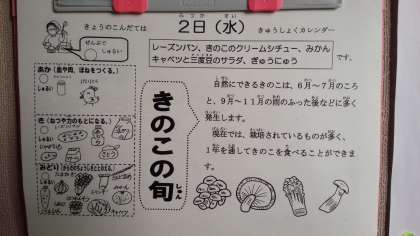 きょうのこんだては
2日(水)
みっか
せい
きゅうしょくカレンダー
ぜんぶで
しゅるい
レーズンパン、きのこのクリームシチュー、みかん
キャベツと三度豆のサラダ、ぎゅうにゅう
です。
あか(血や肉、ほねをつくる。)
しゅるい
き(ねつや力のもとになる。)
しゅるい
みどり
しゅるい
みかん
キャベツ
きのこの旬
しゅん
自然にできるきのこは、6月~7月のころ
と、9月~11月の雨のあった後などに多く
発生します。
現在では、栽培されているものが多く、
1年を通してきのこを食べることができま
す。